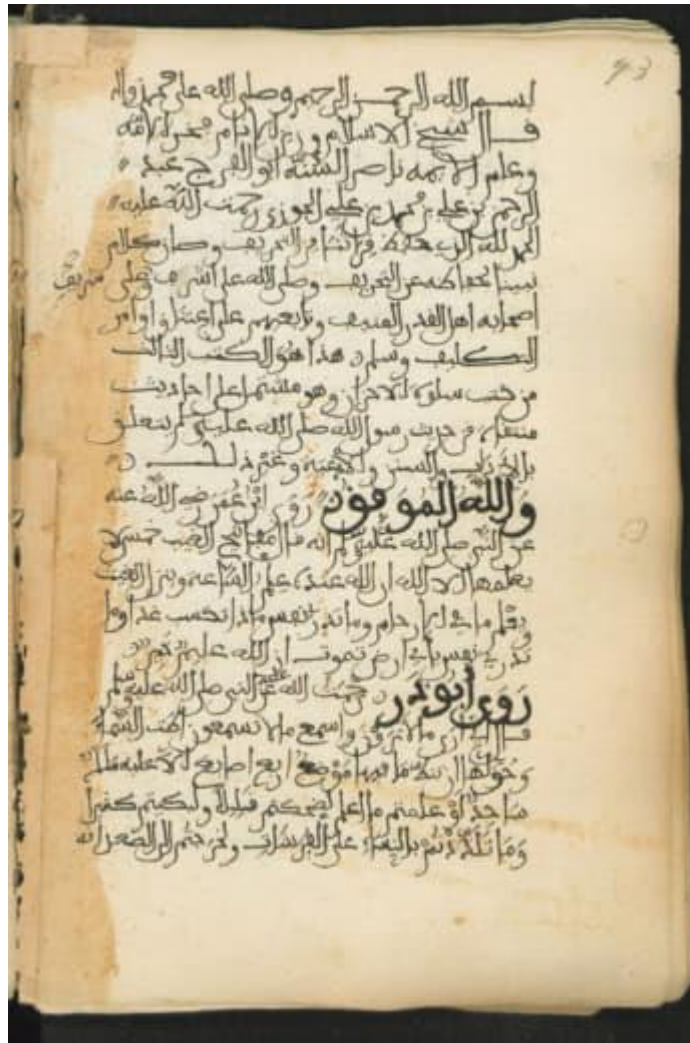 93
بسم الله الرحمن الرحيم وصلى الله على محمد واله
قال الشيخ الاسلام وزين الانام فخر الامة
وعلم الايمة ناصر السنة ابو الفرج عبد
الرحمن بن علي بن محمد بن علي الجوزي رحمت الله عليه
الحمد لله الذي حفظ قراننا من التحريف وصان كلام
نبينا بحفاظه عن التخريف وصلى الله على اشرف وعلى شريف
اصحابه اهل القدر المنيف وتابعيهم على اعتناق اوامر
التكليف وسلم هذا هو الكتب الثالث
من كتب سلوة الاحزان وهو مشتمل على احاديث
منتقاه من حديث رسول الله صلى الله عليه وسلم يتعلق
والسنن والادعية وغير ذلك
والله الموفق روى ابن عمر رضي الله عنه
عن النبي صلى الله عليه وسلم انه قال مفاتيح الغيب خمس لا
يعلمها الا الله ان الله عنده علم الساعة وينزل الغيث
ويعلم ما في الارحام وما تدري نفس ماذا تكسب غدا وما
تدري نفس باي ارض تموت ان الله عليم خبير
روى ابو ذر رحمت الله عليه عن النبي صلى الله عليه وسلم
قال اني ارى ما لا ترون واسمع ما لا تسمعون اطت السماء
وحق لها ان تئط ما فيها موضع اربع اصابع الا عليه ملك
ساجد لو علمتم ما اعلم لضحكتم قليلا ولبكيتم كثيرا
وما تلذذتم بالنساء على الفرشات ولخرجتم الى الصعدات